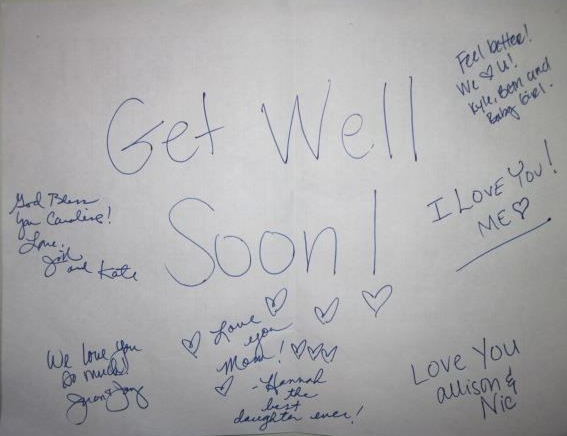 Get Well
Soon!
Feel better!
We ♡ U!
Kyle, Beth and
Baby Girl.
God Bless
you Caroline!
Love,
Josh
and Kate
I LOVE YOU!
ME ♡
♡ Love ♡
you
Mom! ♡♡♡
♡ -Hannah
the
best
daughter ever!
We love you
so much!
LOVE YOU
allison &
Nic